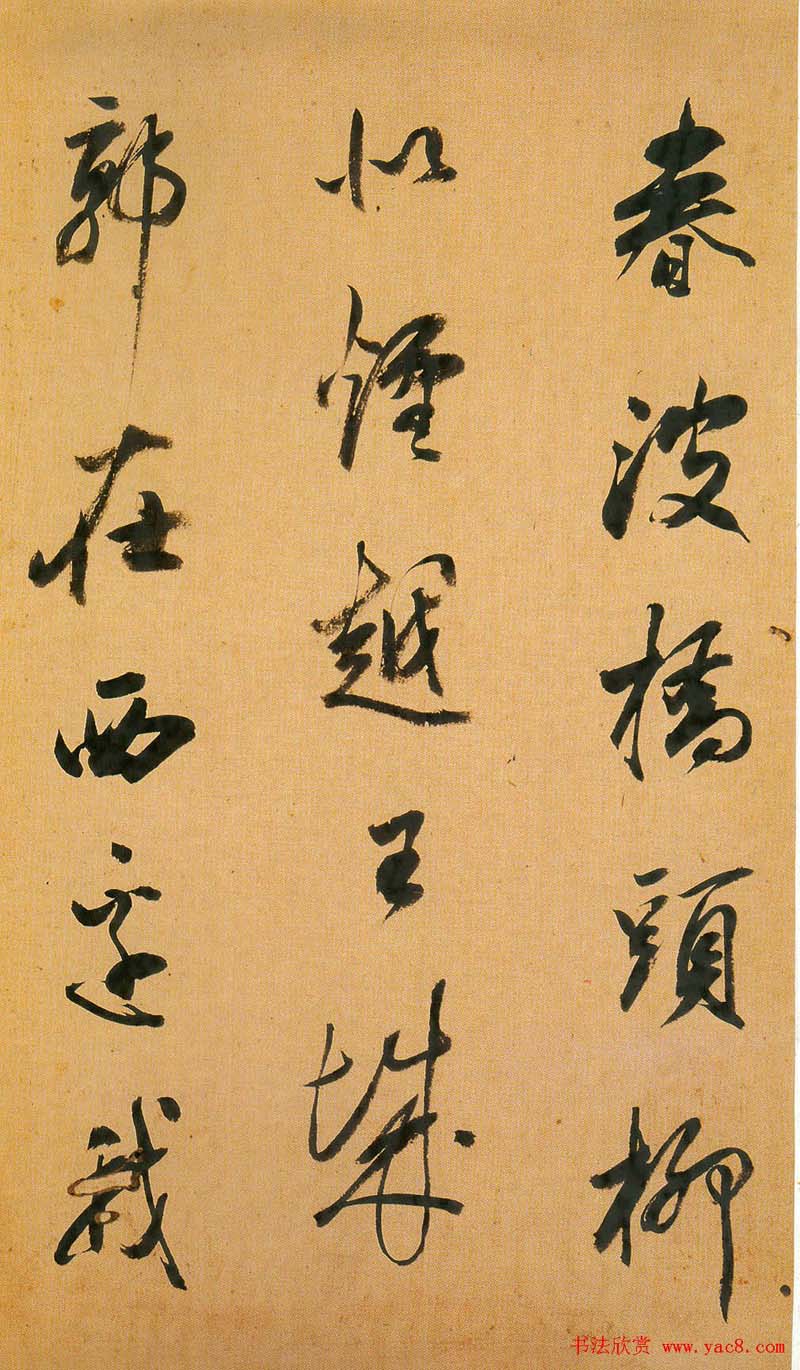 春波橋頭柳
似煙越王城
郭在西邊
书法欣赏 www.yac8.com